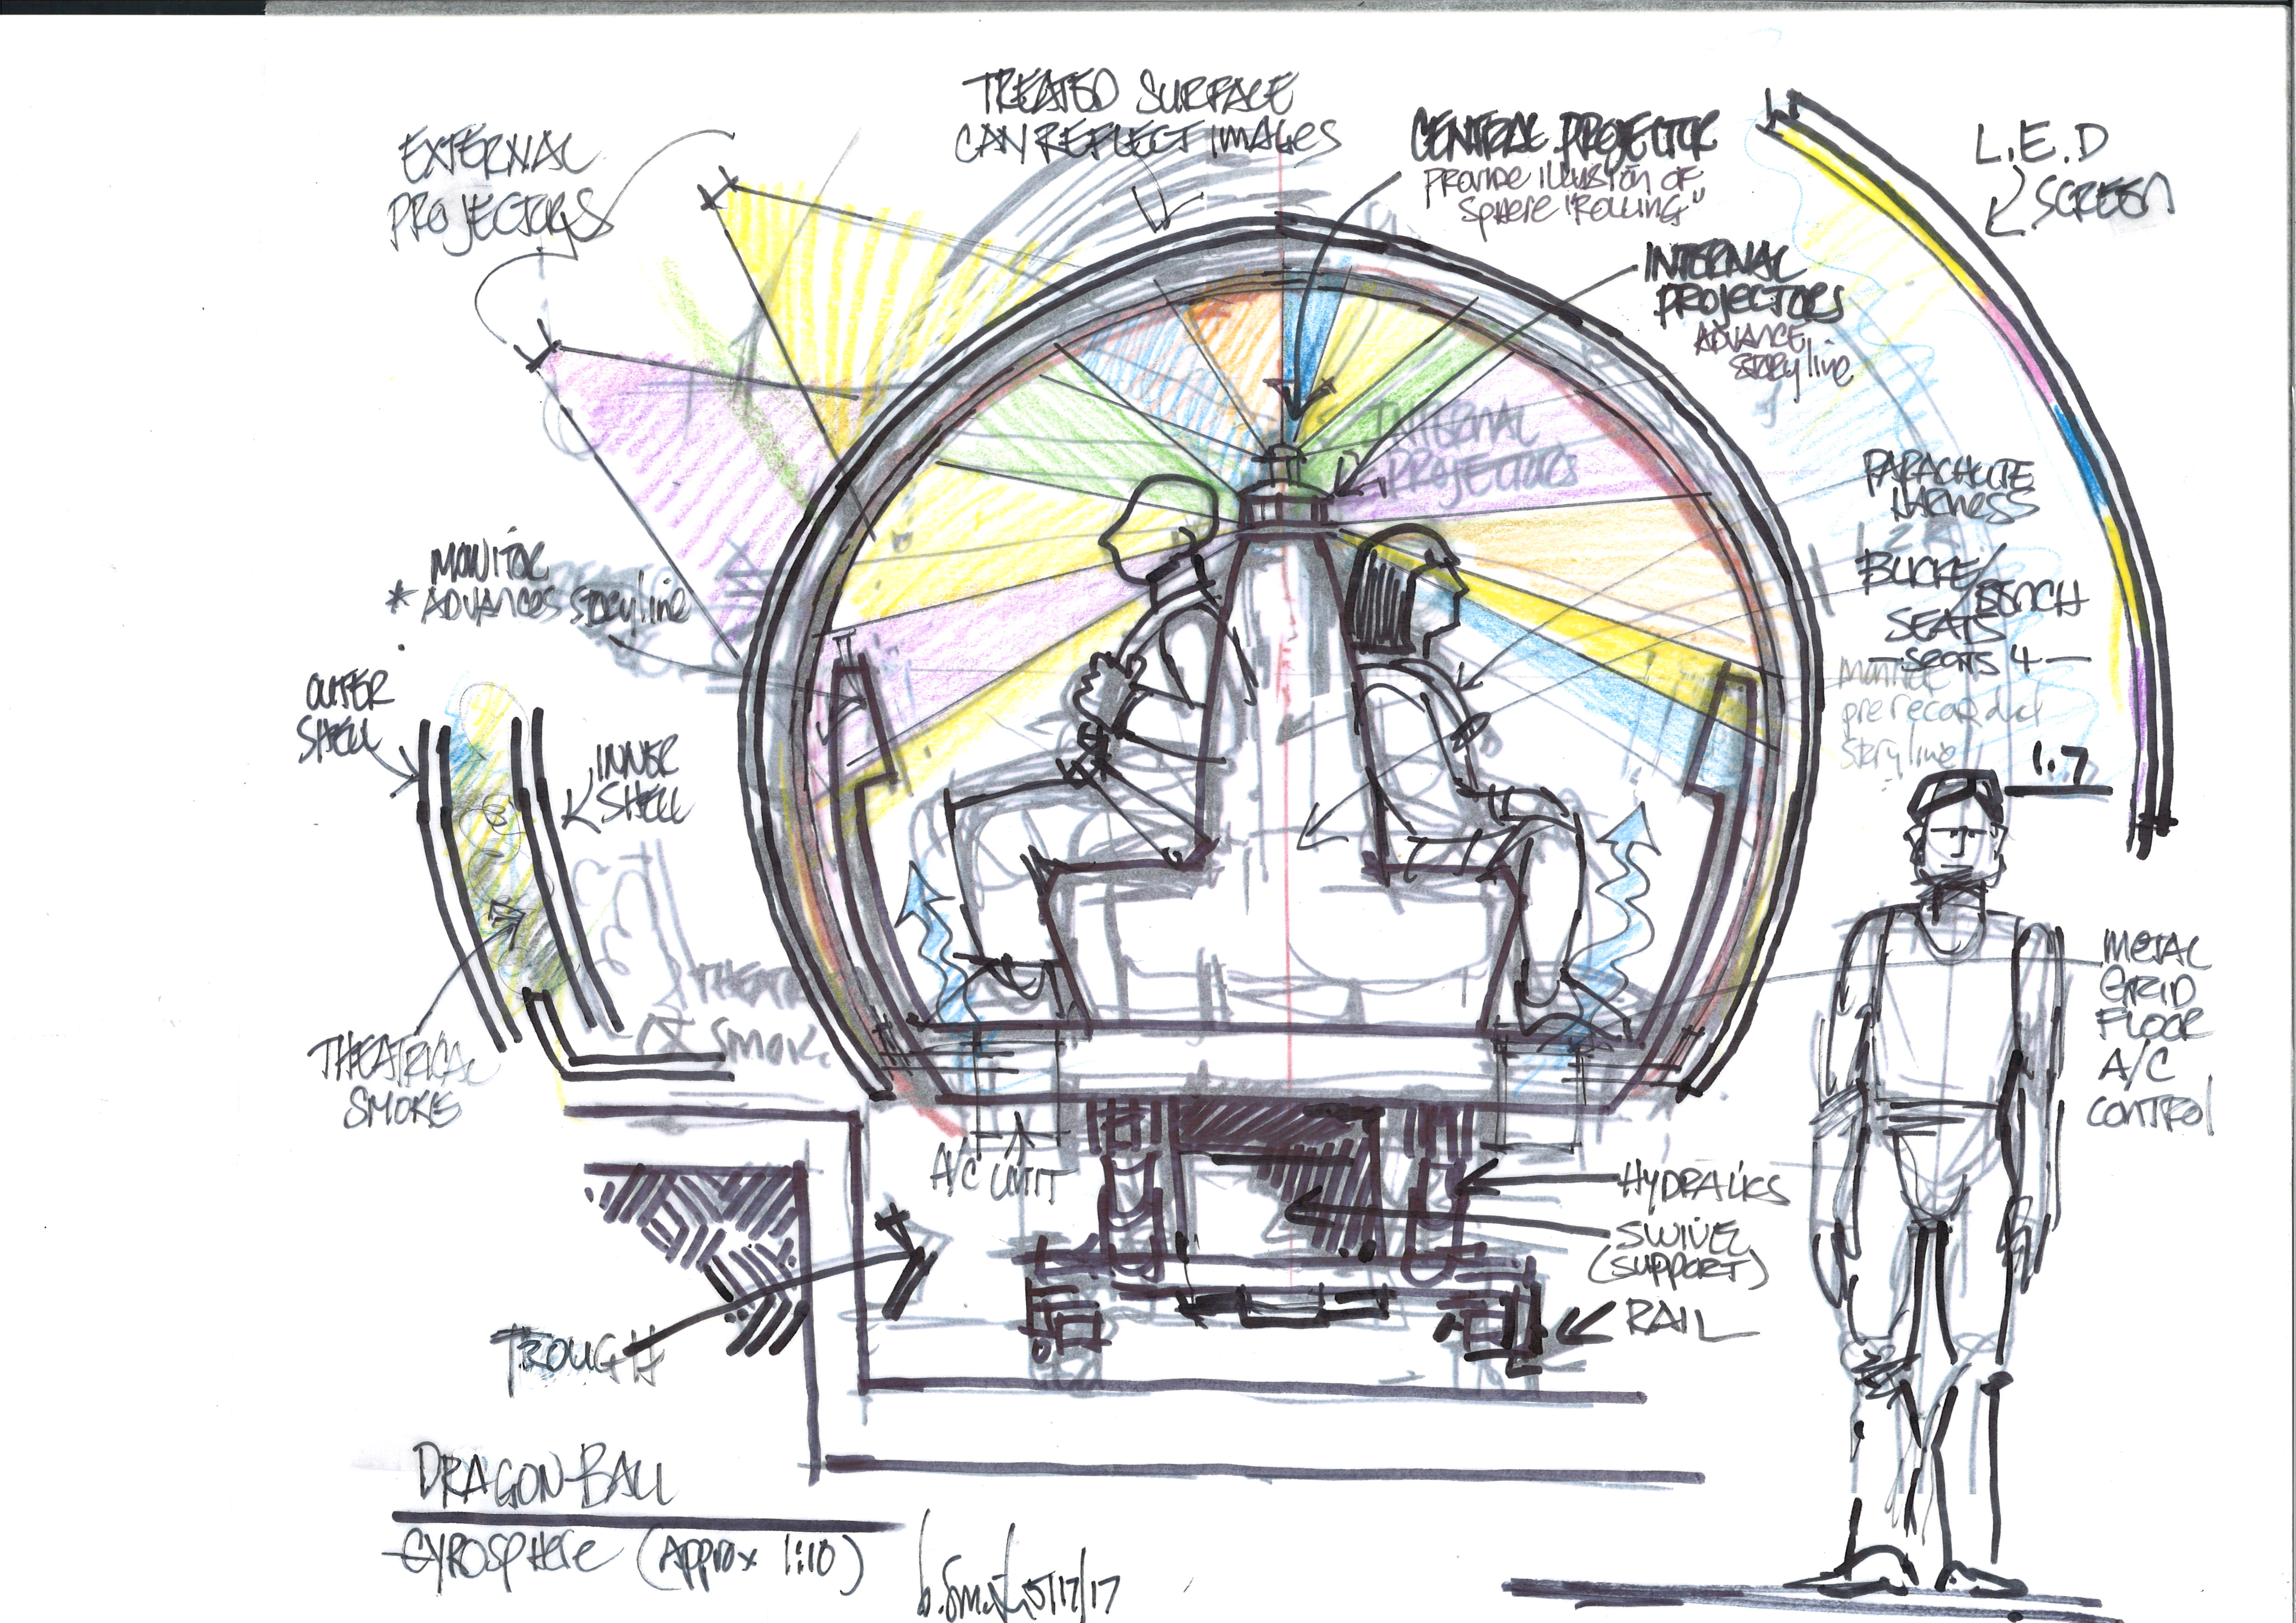 TREATED SURFACE
CAN REFLECT IMAGES
EXTERNAL
PROJECTORS
CENTRAL PROJECTOR
PROVIDE ILLUSION OF
SPHERE "ROLLING"
L.E.D
SCREEN
INTERNAL
PROJECTORS
ADVANCE
STORYLINE
INTERNAL
PROJECTORS
PARACHUTE
HARNESS
BUCKET/
BENCH
SEATS
- SEATS 4 -
MONITOR
prerecorded
storyline
MONITOR
* ADVANCES STORYLINE
OUTER
SHELL
INNER
SHELL
1.7
THEATRICAL
SMOKE
SMOKE
METAL
GRID
FLOOR
A/C
CONTROL
A/C UNIT
HYDRALICS
SWIVEL
(SUPPORT)
RAIL
TROUGH
DRAGON-BALL
GYROSPHERE (APPROX 1:10)
5/17/17